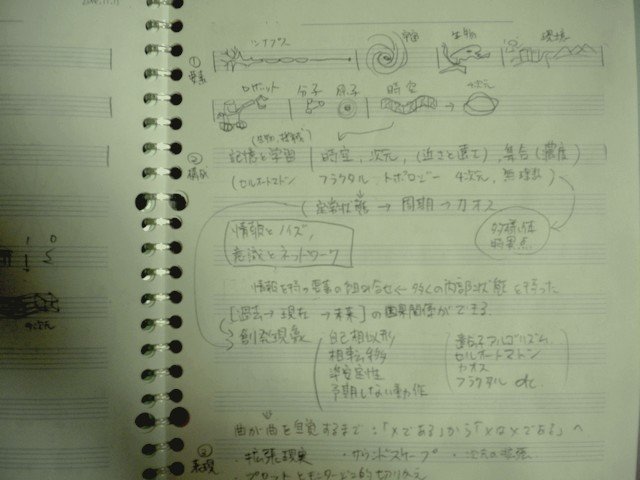 シナプス 宇宙 生物 環境
① 要素
ロボット 分子 原子 時空 4次元
(生物, 機械)
② 構成 記憶と学習 時空, 次元, (近さと遠さ), 集合(濃度)
(セルオートマトン フラクタル, トポロジー 4次元, 無理数)
(定常状態 → 周期 → カオス
多様体 特異点
情報とノイズ,
意識とネットワーク
4次元
情報を持つ要素の組み合せ ← 多くの内部状態を持った
[過去 → 現在 → 未来]の因果関係ができる.
創発現象 自己相似形 量子アルゴリズム
相転移 セルオートマトン
準安定性 カオス
予期しない動作 フラクタル etc.
曲が曲を自覚するまで:「Xである」から「XはXである」へ
③ 表現 ・拡張現実 ・サウンドスケープ ・次元の拡張
・プロットとモンタージュ的切りかえ